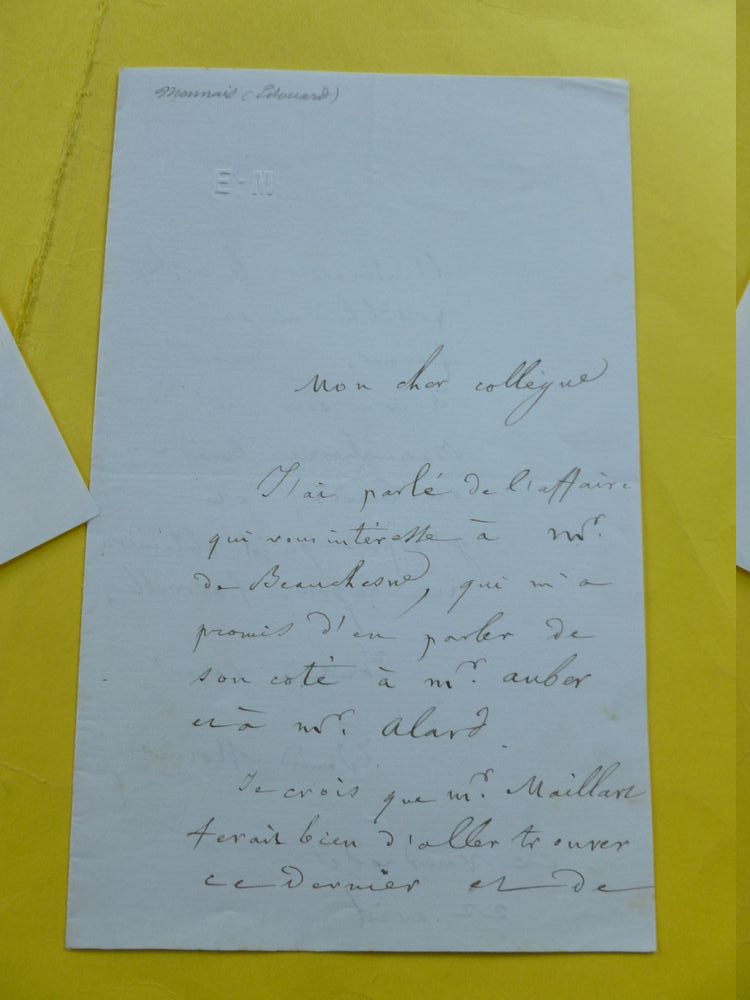 Monnais (Edouard)
E-M
Mon cher collègue
J'ai parlé de l'affaire
qui vous intéresse à mr.
de Beauchesne, qui m'a
promis d'en parler de
son coté à mr. auber
et à mr. Alard.
Je crois que mr. Maillart
ferait bien d'aller trouver
ce dernier et de